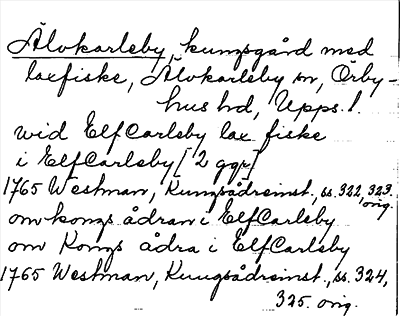 Älvkarleby, kungsgård med
laxfiske, Älvkarleby sn, Örby-
hus hd, Upps. l.
wid ElfCarleby lax fiske
i ElfCarleby [2 ggr]
1765 Westman, Kungsådreinst., ss. 322, 323.
orig.
om kongs ådran i ElfCarleby
om Kongs ådra i ElfCarleby
1765 Westman, Kungsådreinst., ss. 324,
325. orig.